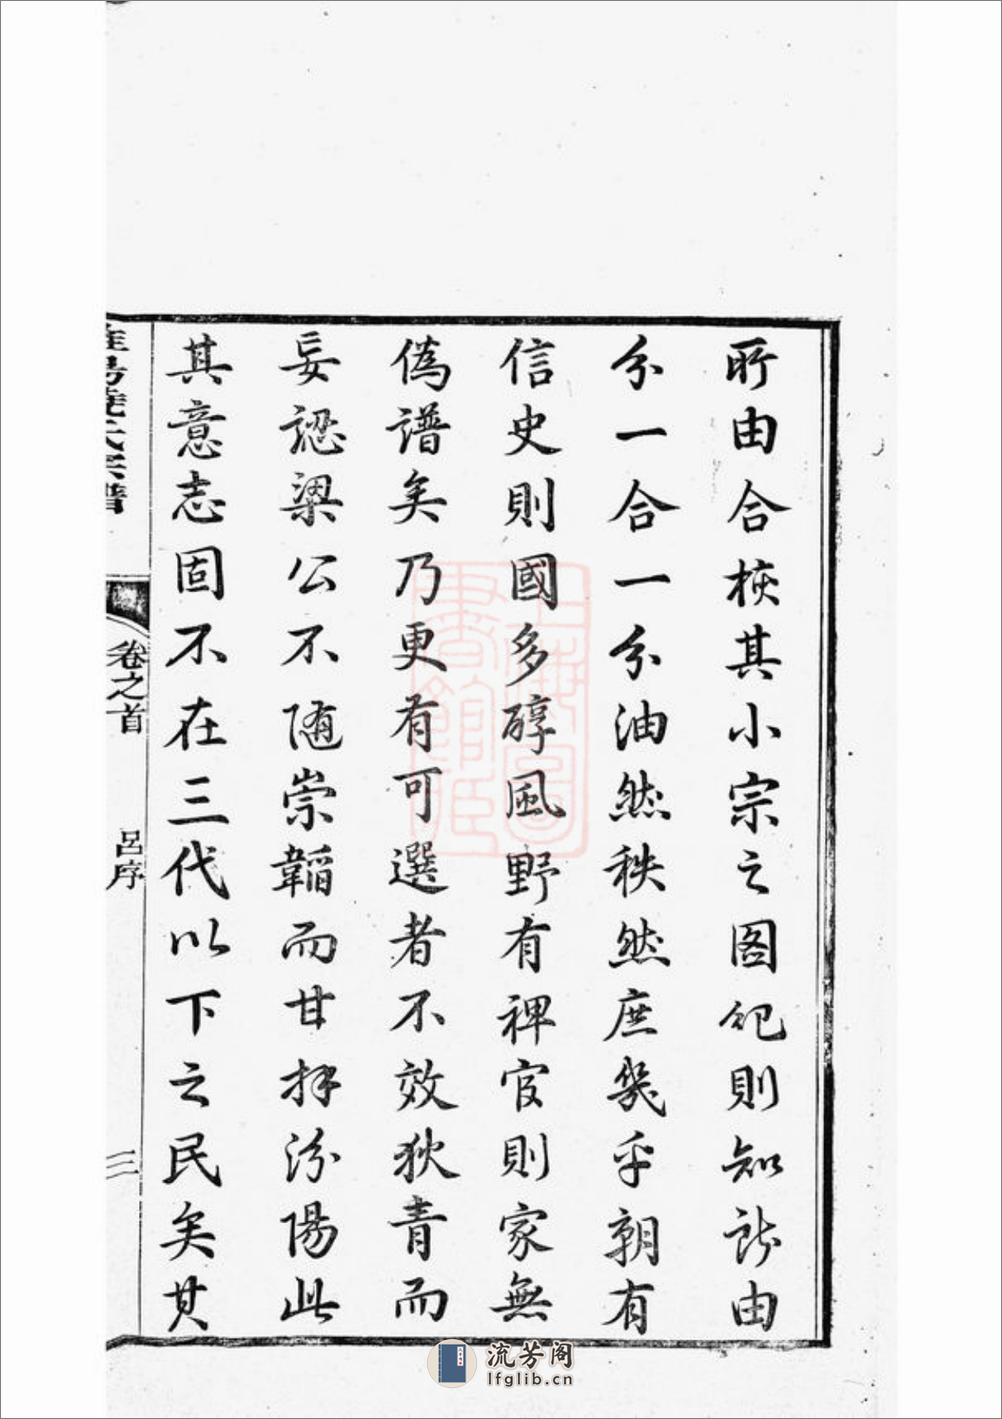 所由合核其小宗之图地則知所由
分一合一分油然秩然庶幾乎朝有
信史則國多醇風野有稗官則家無
偽譜矣乃更有可選者不效狄青而
妄認梁公不随崇韜而甘拜汾陽此
其意志固不在三代以下之民矣其
卷之首
呂序
三
上海圖
書館藏
流芳阁
lfglib.cn